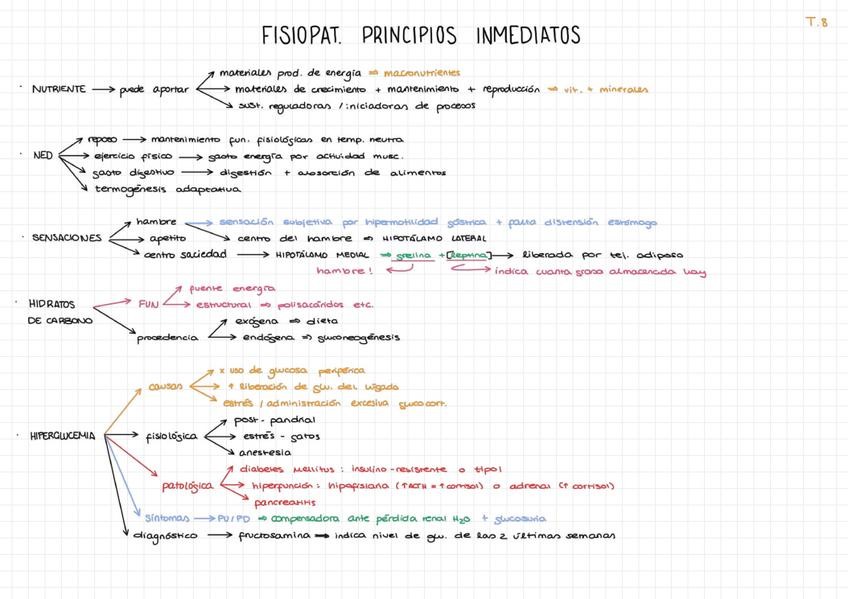 T.8
FISIOPAT. PRINCIPIOS INMEDIATOS
materiales prod. de energía ⇒ macronutrientes
· NUTRIENTE → puede aportar materiales de crecimiento + mantenimiento + reproducción ⇒ vit. + minerales
sust. reguladoras / iniciadoras de procesos
reposo → mantenimiento fun. fisiológicas en temp. neutra
· NED ejercicio físico → gasto energía por actividad musc.
gasto digestivo → digestión + absorción de alimentos
termogénesis adaptativa
hambre → sensación subjetiva por hipermotilidad gástrica + falta distensión estómago
· SENSACIONES apetito centro del hambre ⇒ HIPOTÁLAMO LATERAL
centro saciedad → HIPOTÁLAMO MEDIAL ⇒ grelina + [leptina] → liberada por tej. adiposo
hambre! indica cuanta grasa almacenada hay
fuente energía
· HIDRATOS FUN estructural ⇒ polisacáridos etc.
DE CARBONO exógena ⇒ dieta
procedencia endógena ⇒ gluconeogénesis
x uso de glucosa periférica
causas ↑ liberación de glu. del hígado
estrés / administración excesiva glucocort.
post-pandrial
· HIPERGLUCEMIA fisiológica estrés - gatos
anestesia
diabetes mellitus: insulino-resistente o tipo I
patológica hiperfunción: hipofisiana (↑ACTH = ↑ cortisol) o adrenal (↑ cortisol)
pancreatitis
síntomas → PU/PD ⇒ compensadora ante pérdida renal H₂O + glucosuria
diagnóstico → fructosamina ⇒ indica nivel de glu. de las 2 últimas semanas